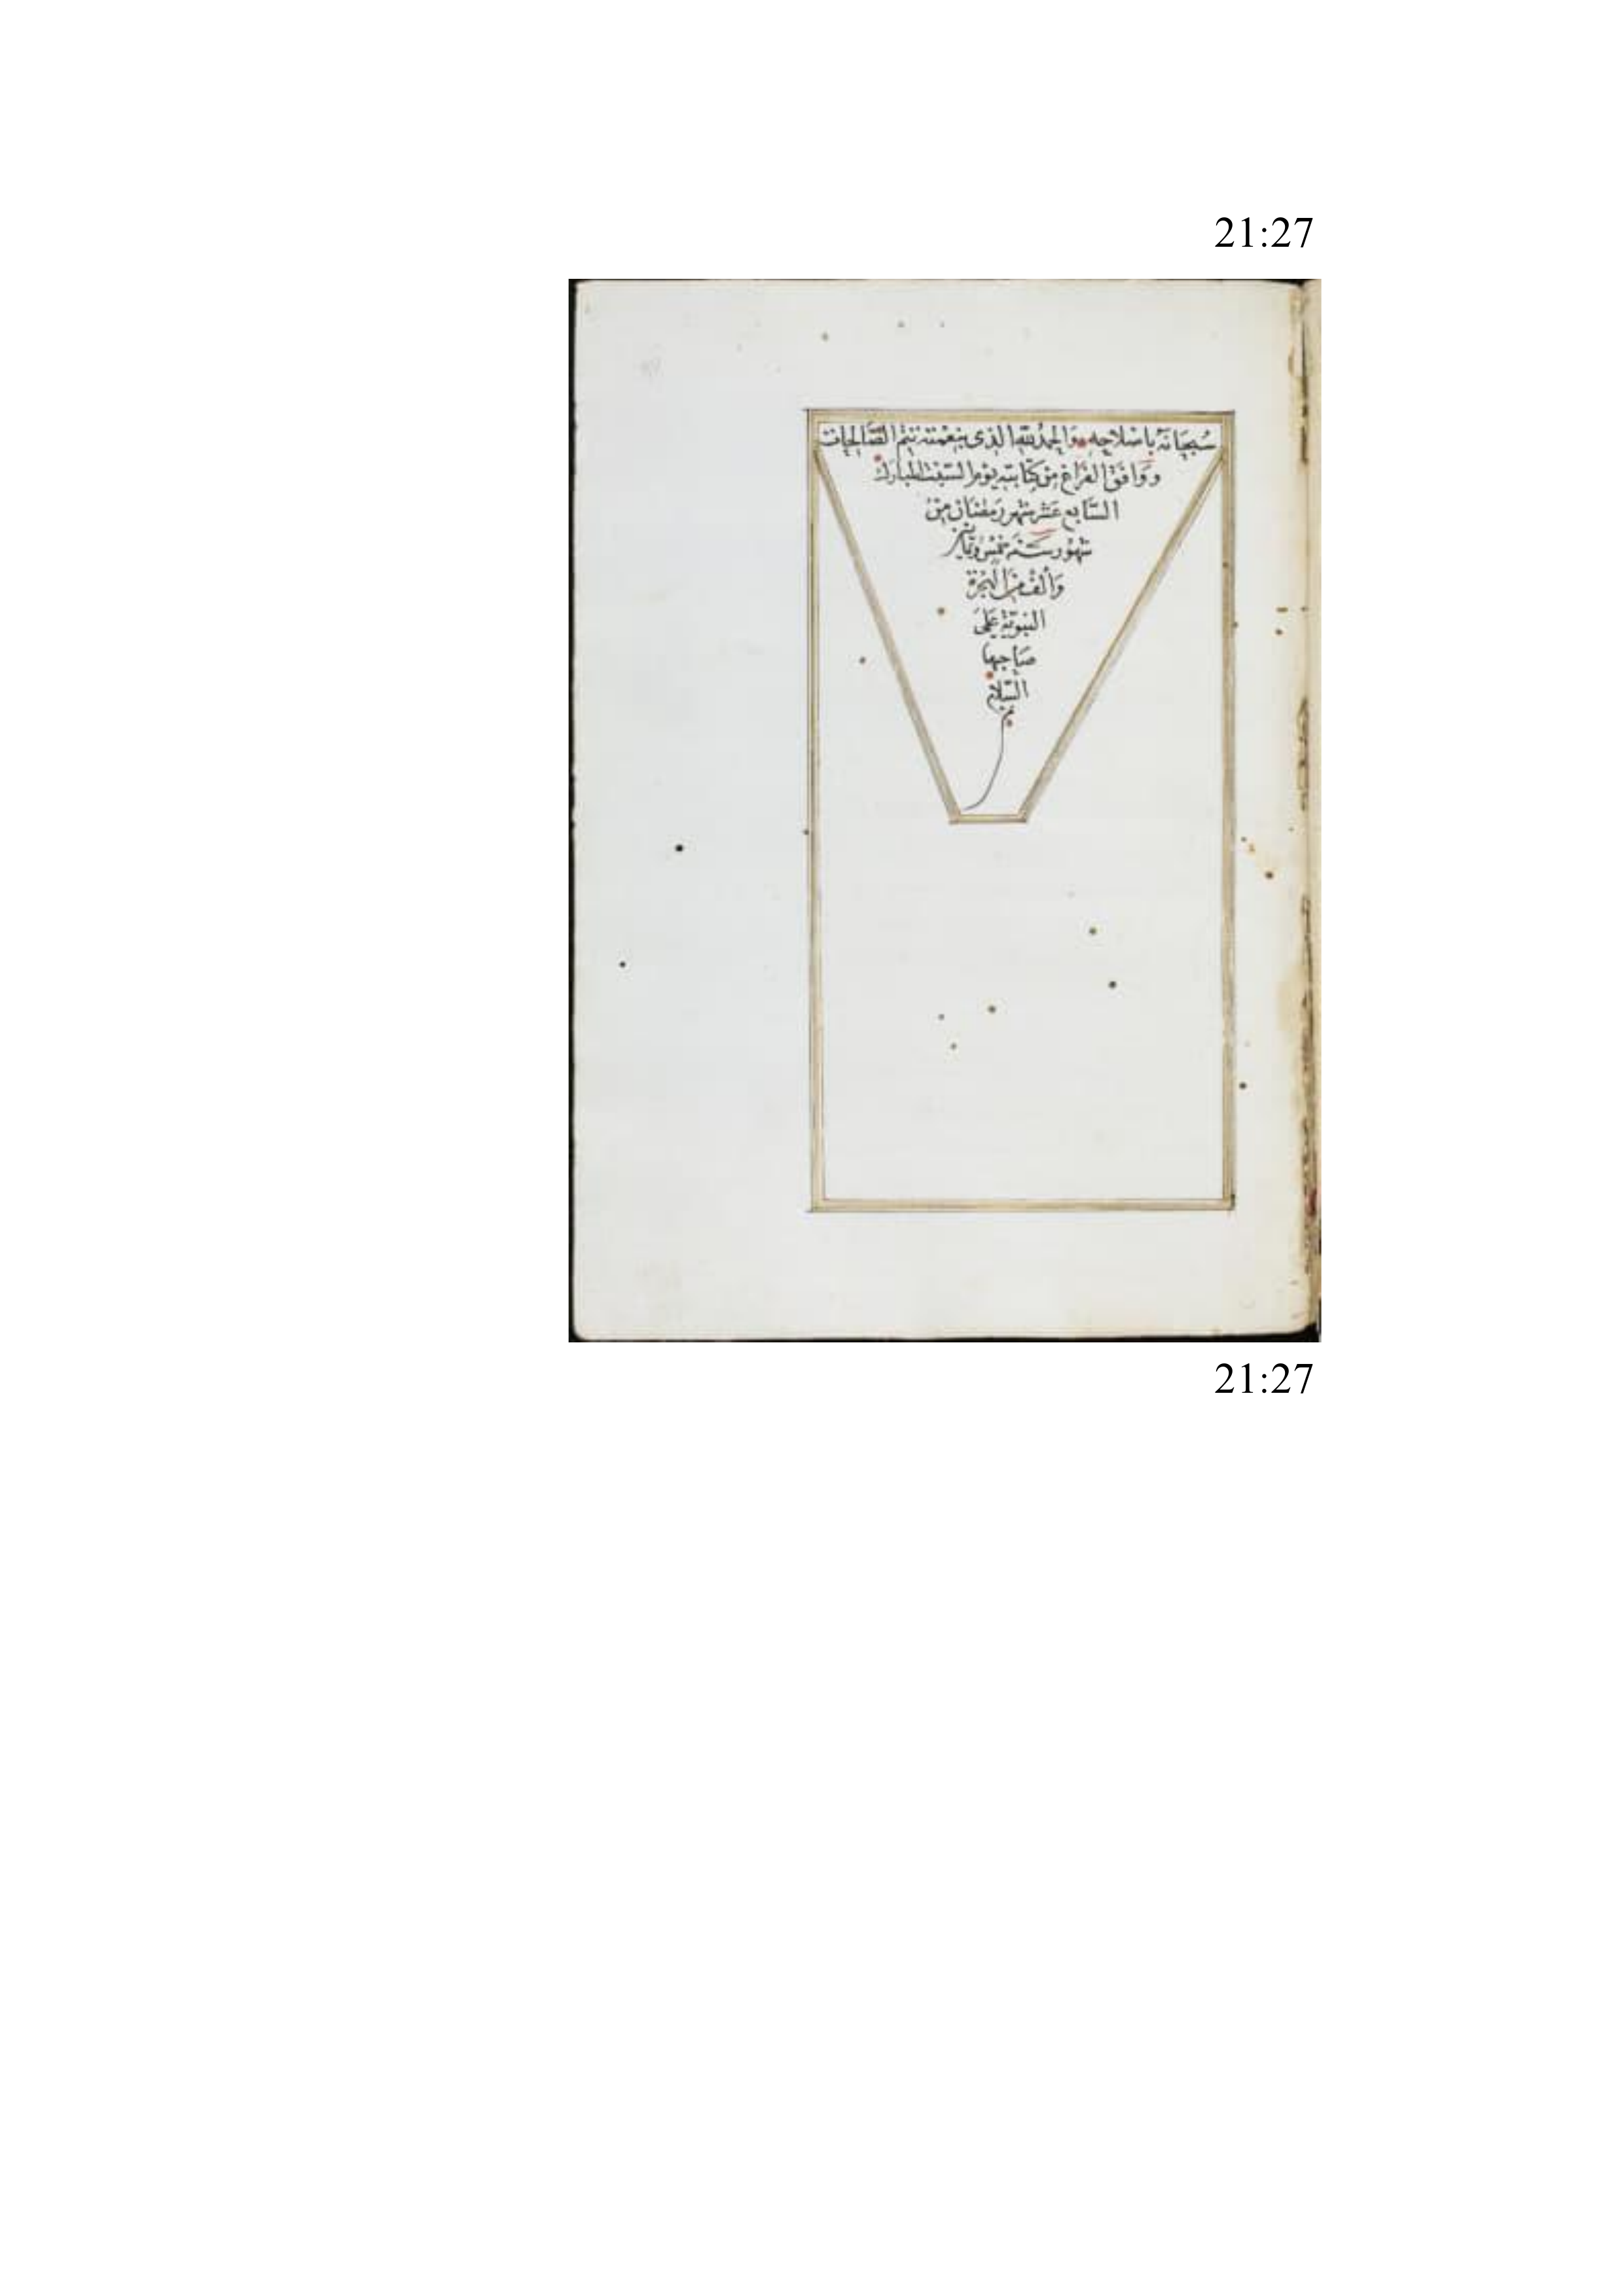 21:27
سُبحَانَهُ بِاصْلاحِهِ وَالحمدُ للهِ الذى بنِعْمَتِهِ تتِمُّ الصَّالِحَات
ووَافَقَ الفَرَاغ مِنْ كِتَابَتِهِ يَوْم السَّبْت المُبَارك
السَّابِع عَشَر شهر رَمَضَان مِنْ
شهُور سَنَة خمْس وثمانين
وَألف مِنَ الهِجْرَة
النبويّة عَلَى
صَاحِبهَا
السَّلام
تم
21:27